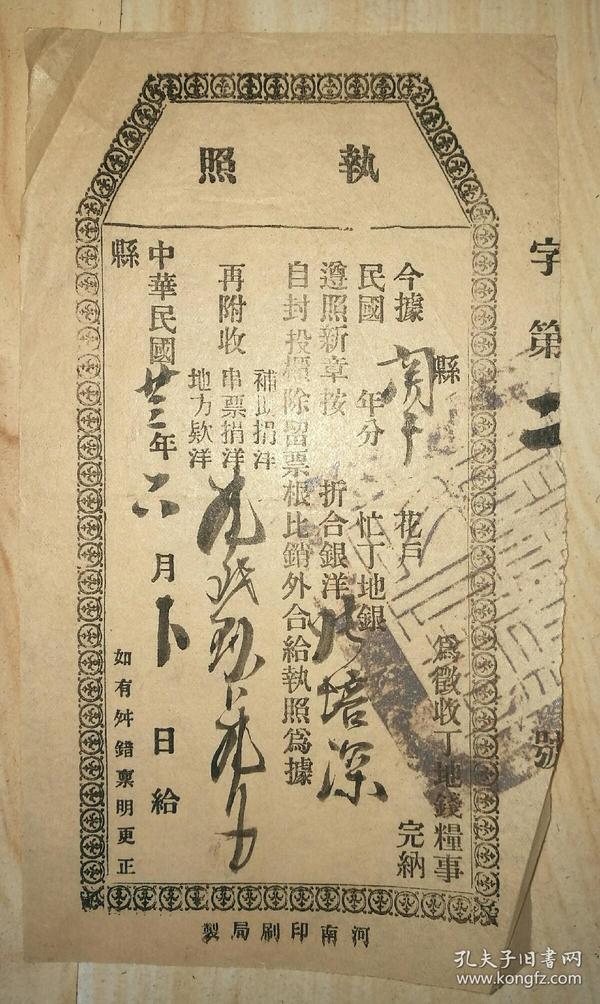 執照
字第二號
縣 為徵收丁地錢糧事
今據 花戶 完納
民國 年分 忙丁地銀
遵照新章按 折合銀洋 培深
自封投櫃除留票根比銷外合給執照為據
補助捐洋
再附收串票捐洋
地方欵洋
中華民國廿三年六月 日給
縣
如有舛錯稟明更正
河南印刷局製
孔夫子旧书网
www.kongfz.com